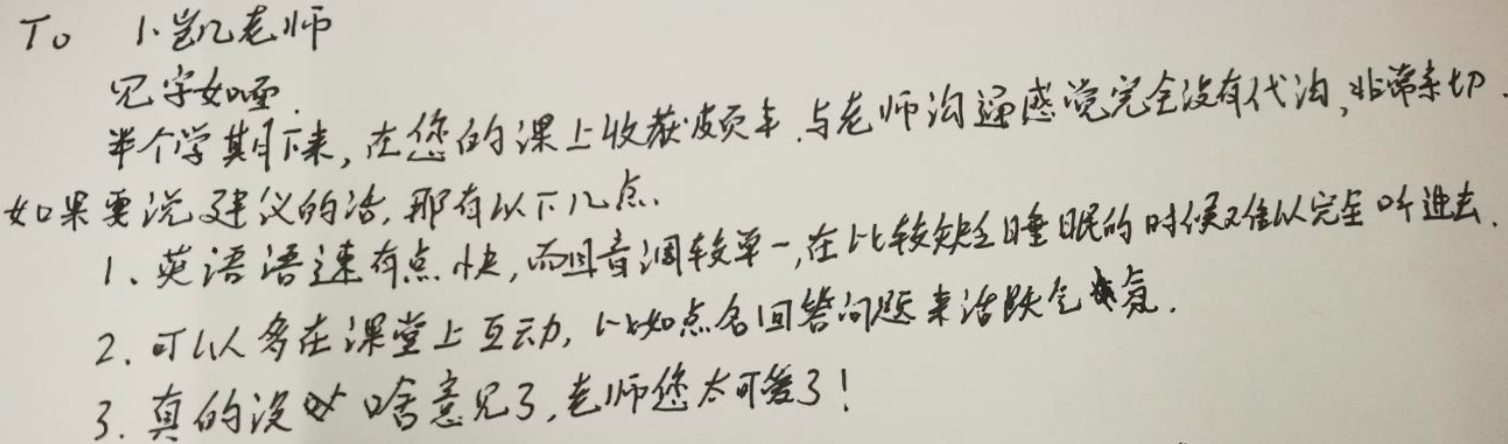 To 小凯老师
见字如晤.
半个学期下来,在您的课上收获颇丰.与老师沟通感觉完全没有代沟,非常亲切.
如果要说建议的话,那有以下几点.
1、英语语速有点快,而且音调较单一,在比较缺乏睡眠的时候难以完全听进去.
2、可以多在课堂上互动,比如点名回答问题来活跃气氛.
3.真的没啥意见了,老师您太可爱了!